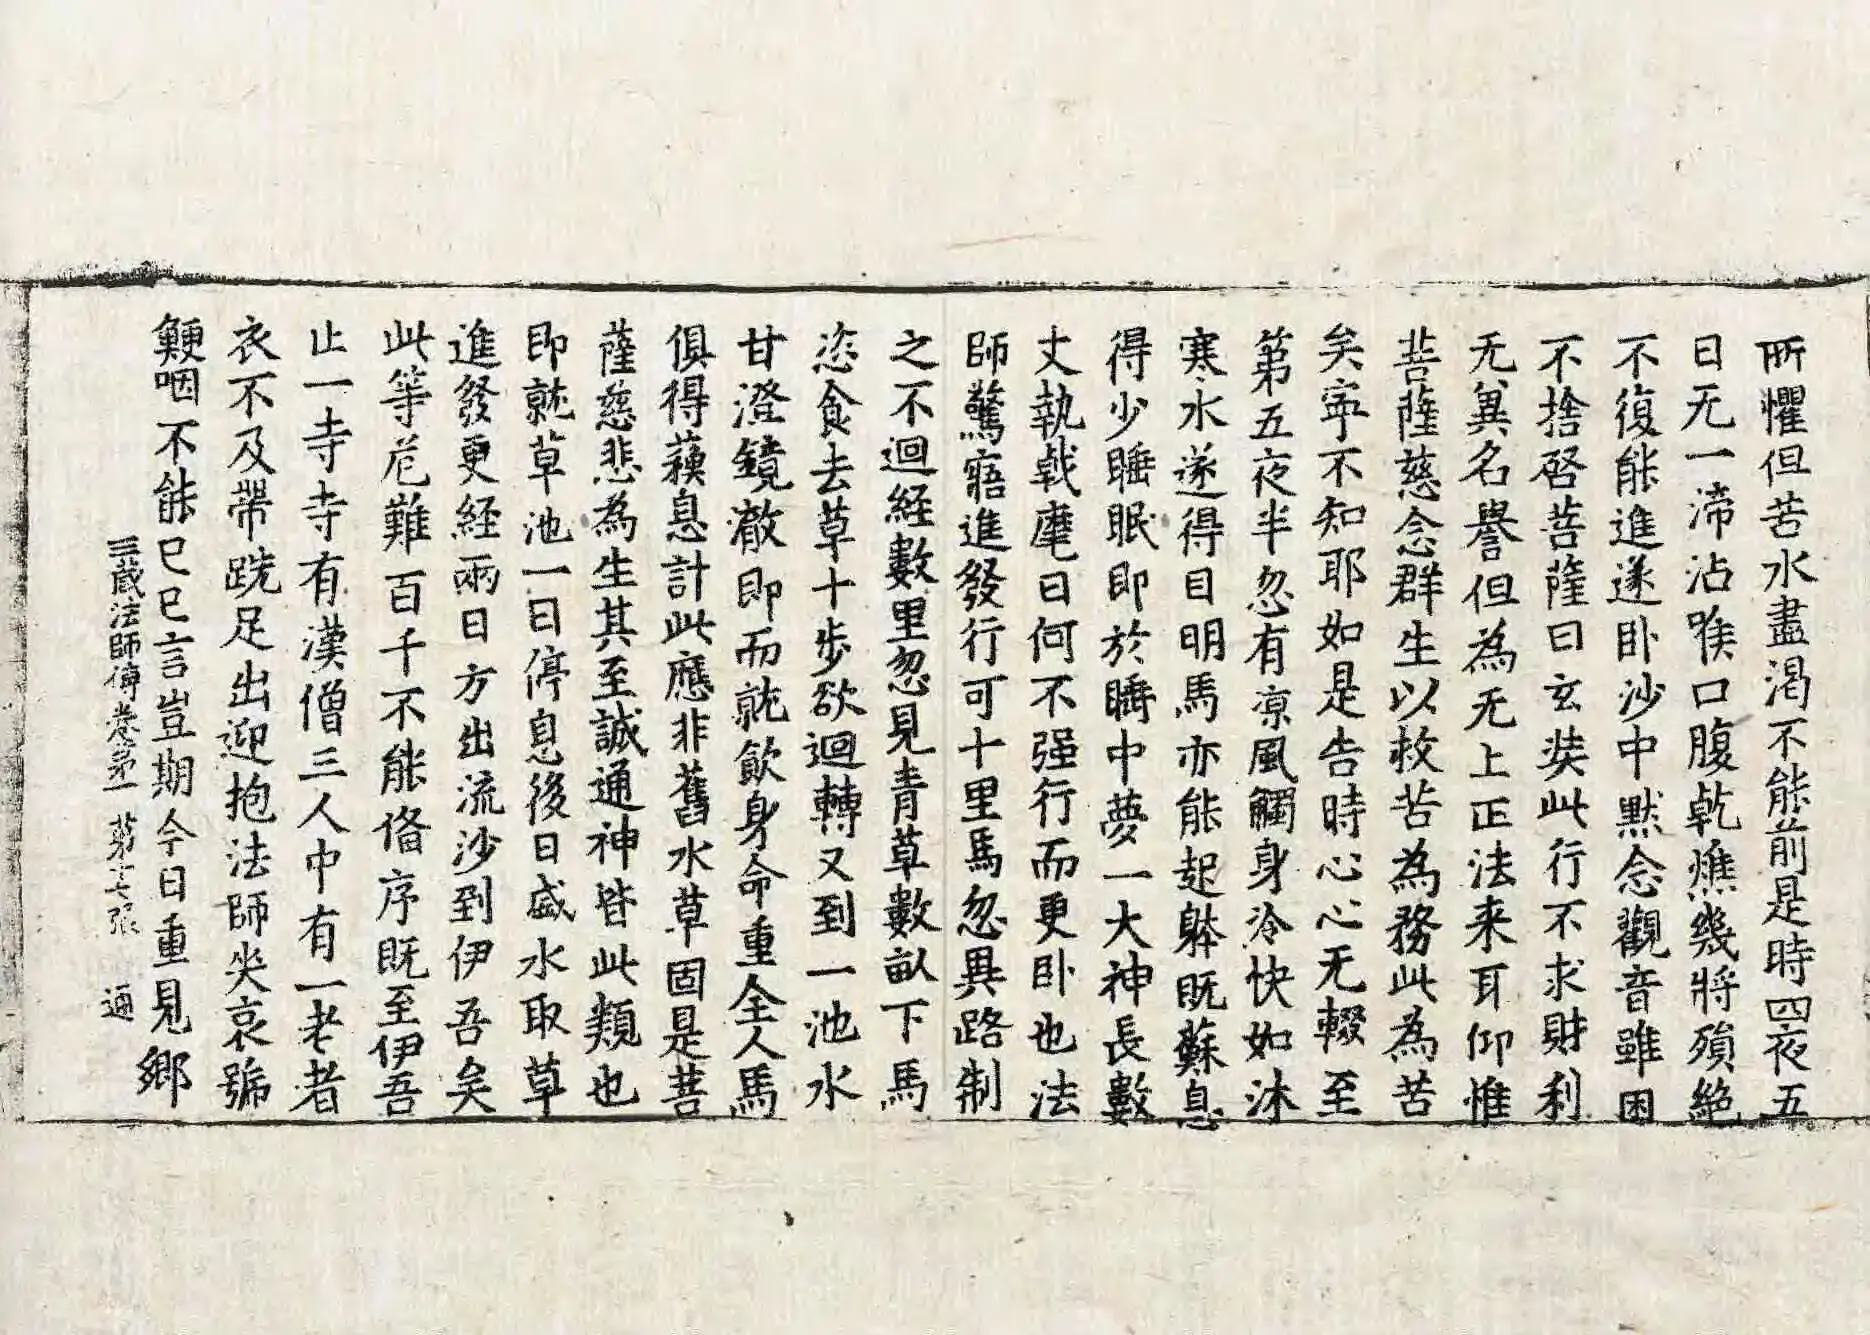 所懼但苦水盡渴不能前是時四夜五
日无一渧沾喉口腹乾燋幾將殞絕
不復能進遂卧沙中默念觀音雖困
不捨啓菩薩曰玄奘此行不求財利
无兾名譽但為无上正法来耳仰惟
菩薩慈念群生以救苦為務此為苦
矣寧不知耶如是告時心心无輟至
第五夜半忽有凉風觸身冷快如沐
寒水遂得目明馬亦能起躰既蘇息
得少睡眠即於睡中夢一大神長數
丈執戟麾曰何不强行而更卧也法
師驚寤進發行可十里馬忽異路制
之不迴経數里忽見青草數畝下馬
恣食去草十步欲迴轉又到一池水
甘澄鏡澈即而就飲身命重全人馬
俱得蘓息計此應非舊水草固是菩
薩慈悲為生其至誠通神皆此類也
即就草池一日停息後日盛水取草
進發更経兩日方出流沙到伊吾矣
此等危難百千不能俻序既至伊吾
止一寺寺有漢僧三人中有一老者
衣不及帶跣足出迎抱法師哭哀號
鯁咽不能已已言豈期今日重見鄉
三藏法師傳卷第一 第十七張 通